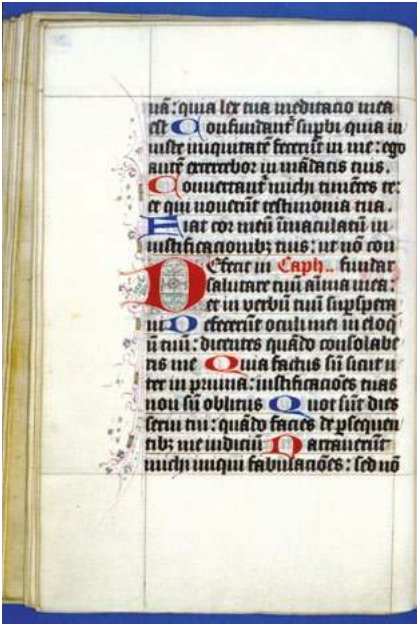 uā: quia lex tua meditacio mea
est Confundant̄ supbi quia in
iuste iniquitatē fecerūt in me: ego
autē exercebor in mādatis tuis.
Conuertant̄ michi timētes te:
et qui nouerūt testimonia tua.
Fiat cor meū īmaculatū in
iustificacionibꝫ tuis: ut nō con
DEfecit in Caph.. fundar
salutare tuū aīma mea:
et in verbū tuū supspera
ui Defecerūt oculi mei in eloq̄
iū tuū: dicentes quādo consolabe
ris me Quia factus sū sicut u
ter in pruina: iustificacōes tuas
non sū oblitus Quot sūt dies
serui tui: quādo facies de ꝑsequen
tibꝫ me iudiciū Narrauerūt
michi iniqui fabulacōes: sed nō